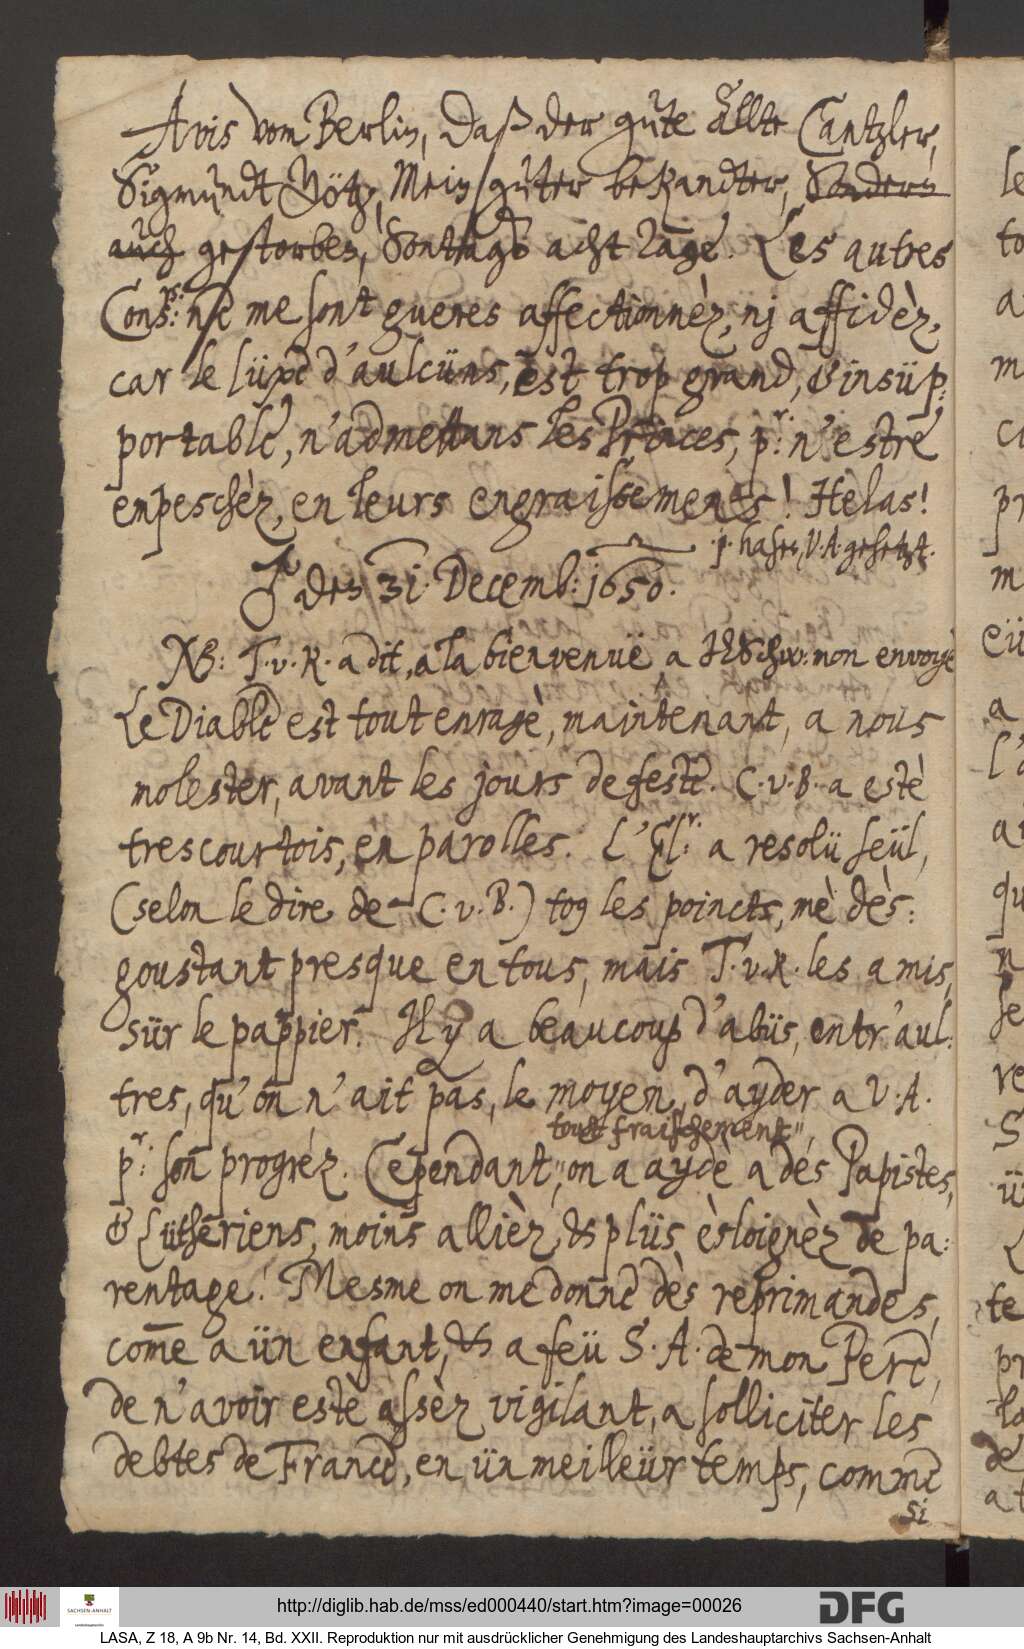 Avis vom Berlin, Daß der gute ållte Cantzler,
Sigmundt Götz, Mein guter bekandter, Sondern
auch gestorben, Sontags acht Tage. Les autres
Cons.rs: ne me sont gueres affectionnèz, nj affidèz,
car le lüxe d'aulcüns, est trop grand, & insüp:
portable, n'admettans les Princes, p.r: n'estre
enpeschèz, en leurs engraissements! Helas!
.j. hasen, V. A. gesetzt.
♂ den 31. Decemb: 1650.
NB: T. v. K. a dit, a la bienvenuë a HBSchw: non envoyè
Le Diable est tout enragè, maintenant, a nous
molester, avant les jours de feste. C. v. B. a estè
tres courtois, en parolles. L'El.r: a resolü seül,
(selon le dire de C. v. B.) to9 les poincts, mè dès:
goustant presque en tous, mais T. v. K. les a mis,
sür le pappier. Il y a beaucoup d'abüs, entr'aul:
tres, qu'on n'ait pas, le moyen, d'ayder a V: A.
toust fraischement",
p.r: son progréz. Cependant," on a aydè a des Papistes,
& Lütheriens, moins allièz, & plüs èsloignèz de pa:
rentage! Mesme on me donne dès reprimandes,
com̅e a ün enfant, & a feü S. A. de mon Pere,
de n'avoir estè assèz vigilant, a solliciter les
debtes de France, en ün meilleür temps, comme
si
http://diglib.hab.de/mss/ed000440/start.htm?image=00026
SACHSEN-ANHALT
DFG
LASA, Z 18, A 9b Nr. 14, Bd. XXII. Reproduktion nur mit ausdrücklicher Genehmigung des Landeshauptarchivs Sachsen-Anhalt